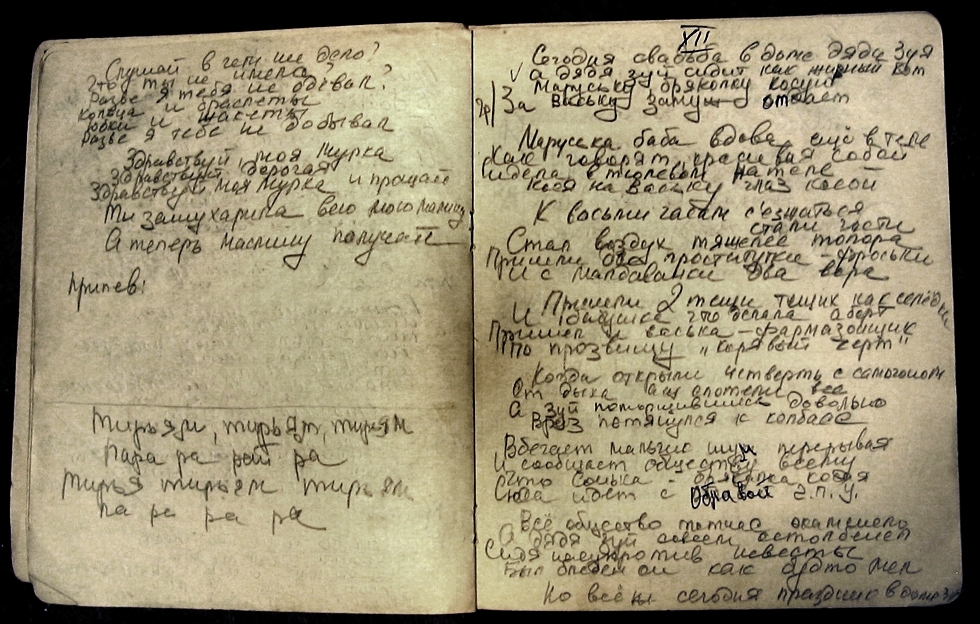 Слушай в чем же дело?
Што ты не имела?
Разве я тебя не одевал?
Кольца и браслеты
Юбки и жакеты
Разве я тебе не добывал
Здравствуй, моя Мурка
Здравствуй дорогая
Здравствуй моя Мурка и прощай
Ты зашухарила всю мою малину
А теперь маслину получай
Припев:
Тирьям, тирьям, тирям
Пара ра рай ра
Тирья тирьям тирьям
па ра ра ра
XII
Сегодня свадьба в доме дяди Зуя
А дядя Зуй сидит как жирный кот
Маруську брякопку косую
За Ваську замуж отдает
Маруська баба вдова, ещё в теле
Как говорят, красивая собой
Сидела в тюлевом на теле
Кося на Ваську глаз косой
К восьми часам съезжаться
стали гости
Стал воздух тяжелее топора
Пришли две проститутки - Фроськи
И с Малдаванки два вора
И Пришли 2 тещи тощих как селёдки
И бабушка что делала аборт
Пришел и Васька - фармазонщик
По прозвищу "Корявый черт"
Когда открыли четверть с самогоном
От дыха все
А Зуй поморщившись довольно
Враз потянулся к колбасе
Вбегает мальчик шум перерывая
И сообщает обществу всему
Что Сонька - брякопка косая
Сюда идет с Оравой Г.П.У.
Всё общество тотчас окаменело
А дядя Зуй совсем остолбенел
Сидя насупротив невесты
Был бледен он как будто мел
Но всё ж сегодня праздник в доме Зуя